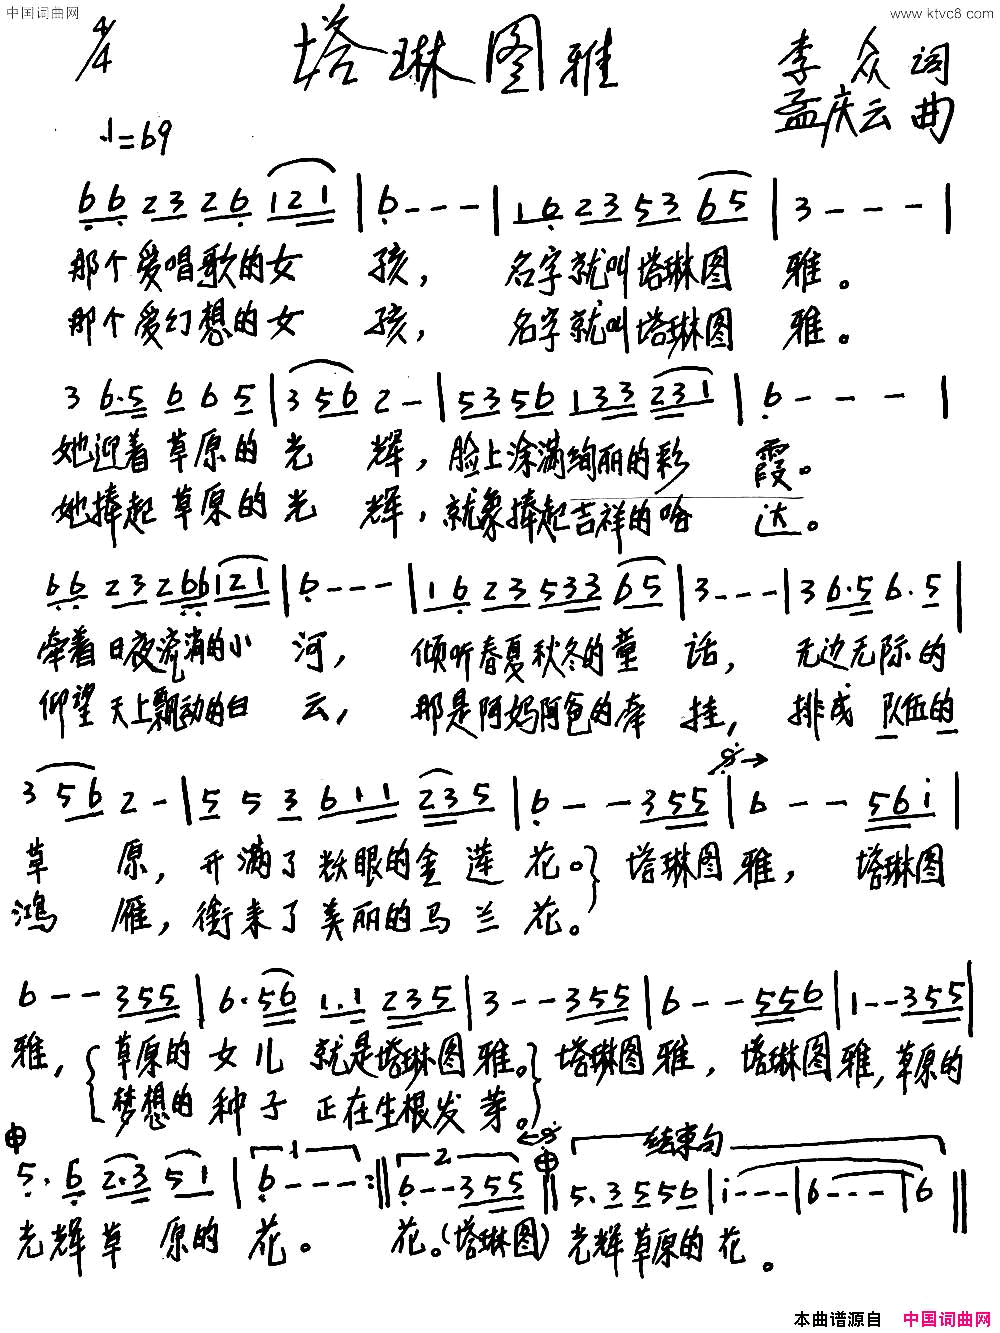 中国词曲网 www.ktvc8.com
4/4 塔琳图雅 李众 词
孟庆云 曲
♩=69
6 6 2 3 2 6 1 2 1 | 6 - - - | 1 6 2 3 5 3 6 5 | 3 - - - |
那个爱唱歌的女 孩， 名字就叫塔琳图 雅。
那个爱幻想的女 孩， 名字就叫塔琳图 雅。
3 6·5 6 6 5 | 3 5 6 2 - | 5 3 5 6 1 3 3 2 3 1 | 6 - - - |
她迎着草原的光 辉，脸上涂满绚丽的彩 霞。
她捧起草原的光 辉，就象捧起吉祥的哈 达。
6 6 2 3 2 6 6 1 2 1 | 6 - - - | 1 6 2 3 5 3 3 6 5 | 3 - - - | 3 6·5 6·5 |
牵着日夜流淌的小 河， 倾听春夏秋冬的童 话， 无边无际的
仰望天上飘动的白 云， 那是阿妈阿爸的牵 挂， 排成队伍的
3 5 6 2 - | 5 5 3 6 1 1 2 3 5 | 6 - - 3 5 5 | 6 - - 5 6 i |
草 原，开满了耀眼的金莲花。塔琳图雅， 塔琳图
鸿 雁，衔来了美丽的马兰花。
6 - - 3 5 5 | 6·5 6 1·1 2 3 5 | 3 - - 3 5 5 | 6 - - 5 5 6 | 1 - - 3 5 5 |
雅，草原的女儿 就是塔琳图雅。塔琳图雅，塔琳图雅，草原的
梦想的种子 正在生根发芽。
结束句
5·6 2·3 5 1 | 1 6 - - - :‖ 2 6 - - 3 5 5 ‖ 5·3 5 5 6 | i - - - | 6 - - - | 6 ‖
光辉草 原的 花。 花。(塔琳图) 光辉草原的花。
本曲谱源自 中国词曲网